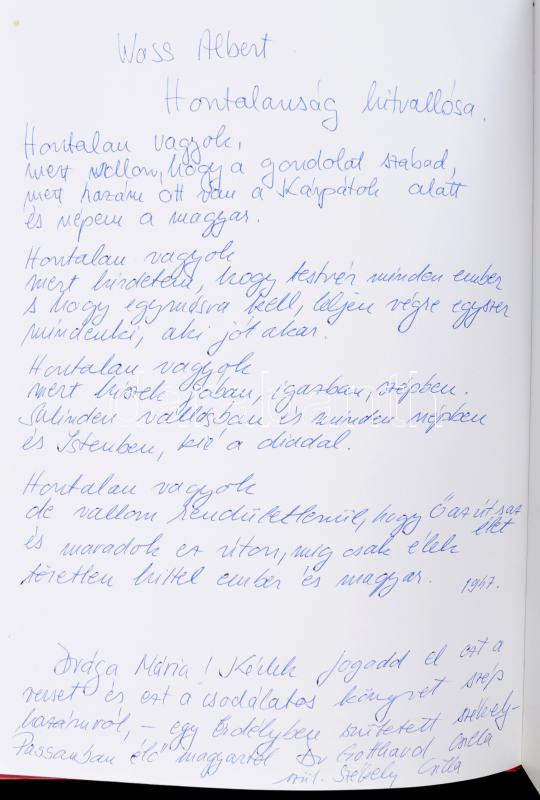 Wass Albert
Hontalanság hitvallása.
Hontalan vagyok,
mert vallom, hogy a gondolat szabad,
mert hazám ott van a Kárpátok alatt
és népem a magyar.
Hontalan vagyok
mert hirdetem, hogy testvér minden ember
s hogy egymásra kell, leljen végre egyszer
mindenki, aki jót akar.
Hontalan vagyok
mert hiszek jóban, igazban, szépben.
Minden vallásban és minden népben
és Istenben, kié a diadal.
Hontalan vagyok
de vallom rendületlenül, hogy Ő az út s az élet
és maradok ez úton, míg csak élek
töretlen hittel ember és magyar. 1947.
Drága Mária! Kérlek fogadd el ezt a
verset és ezt a csodálatos könyvet szép
hazámról, – egy Erdélyben született székely-
Passauban élő magyartól Dr Gotthard Csilla
szül. Székely Csilla